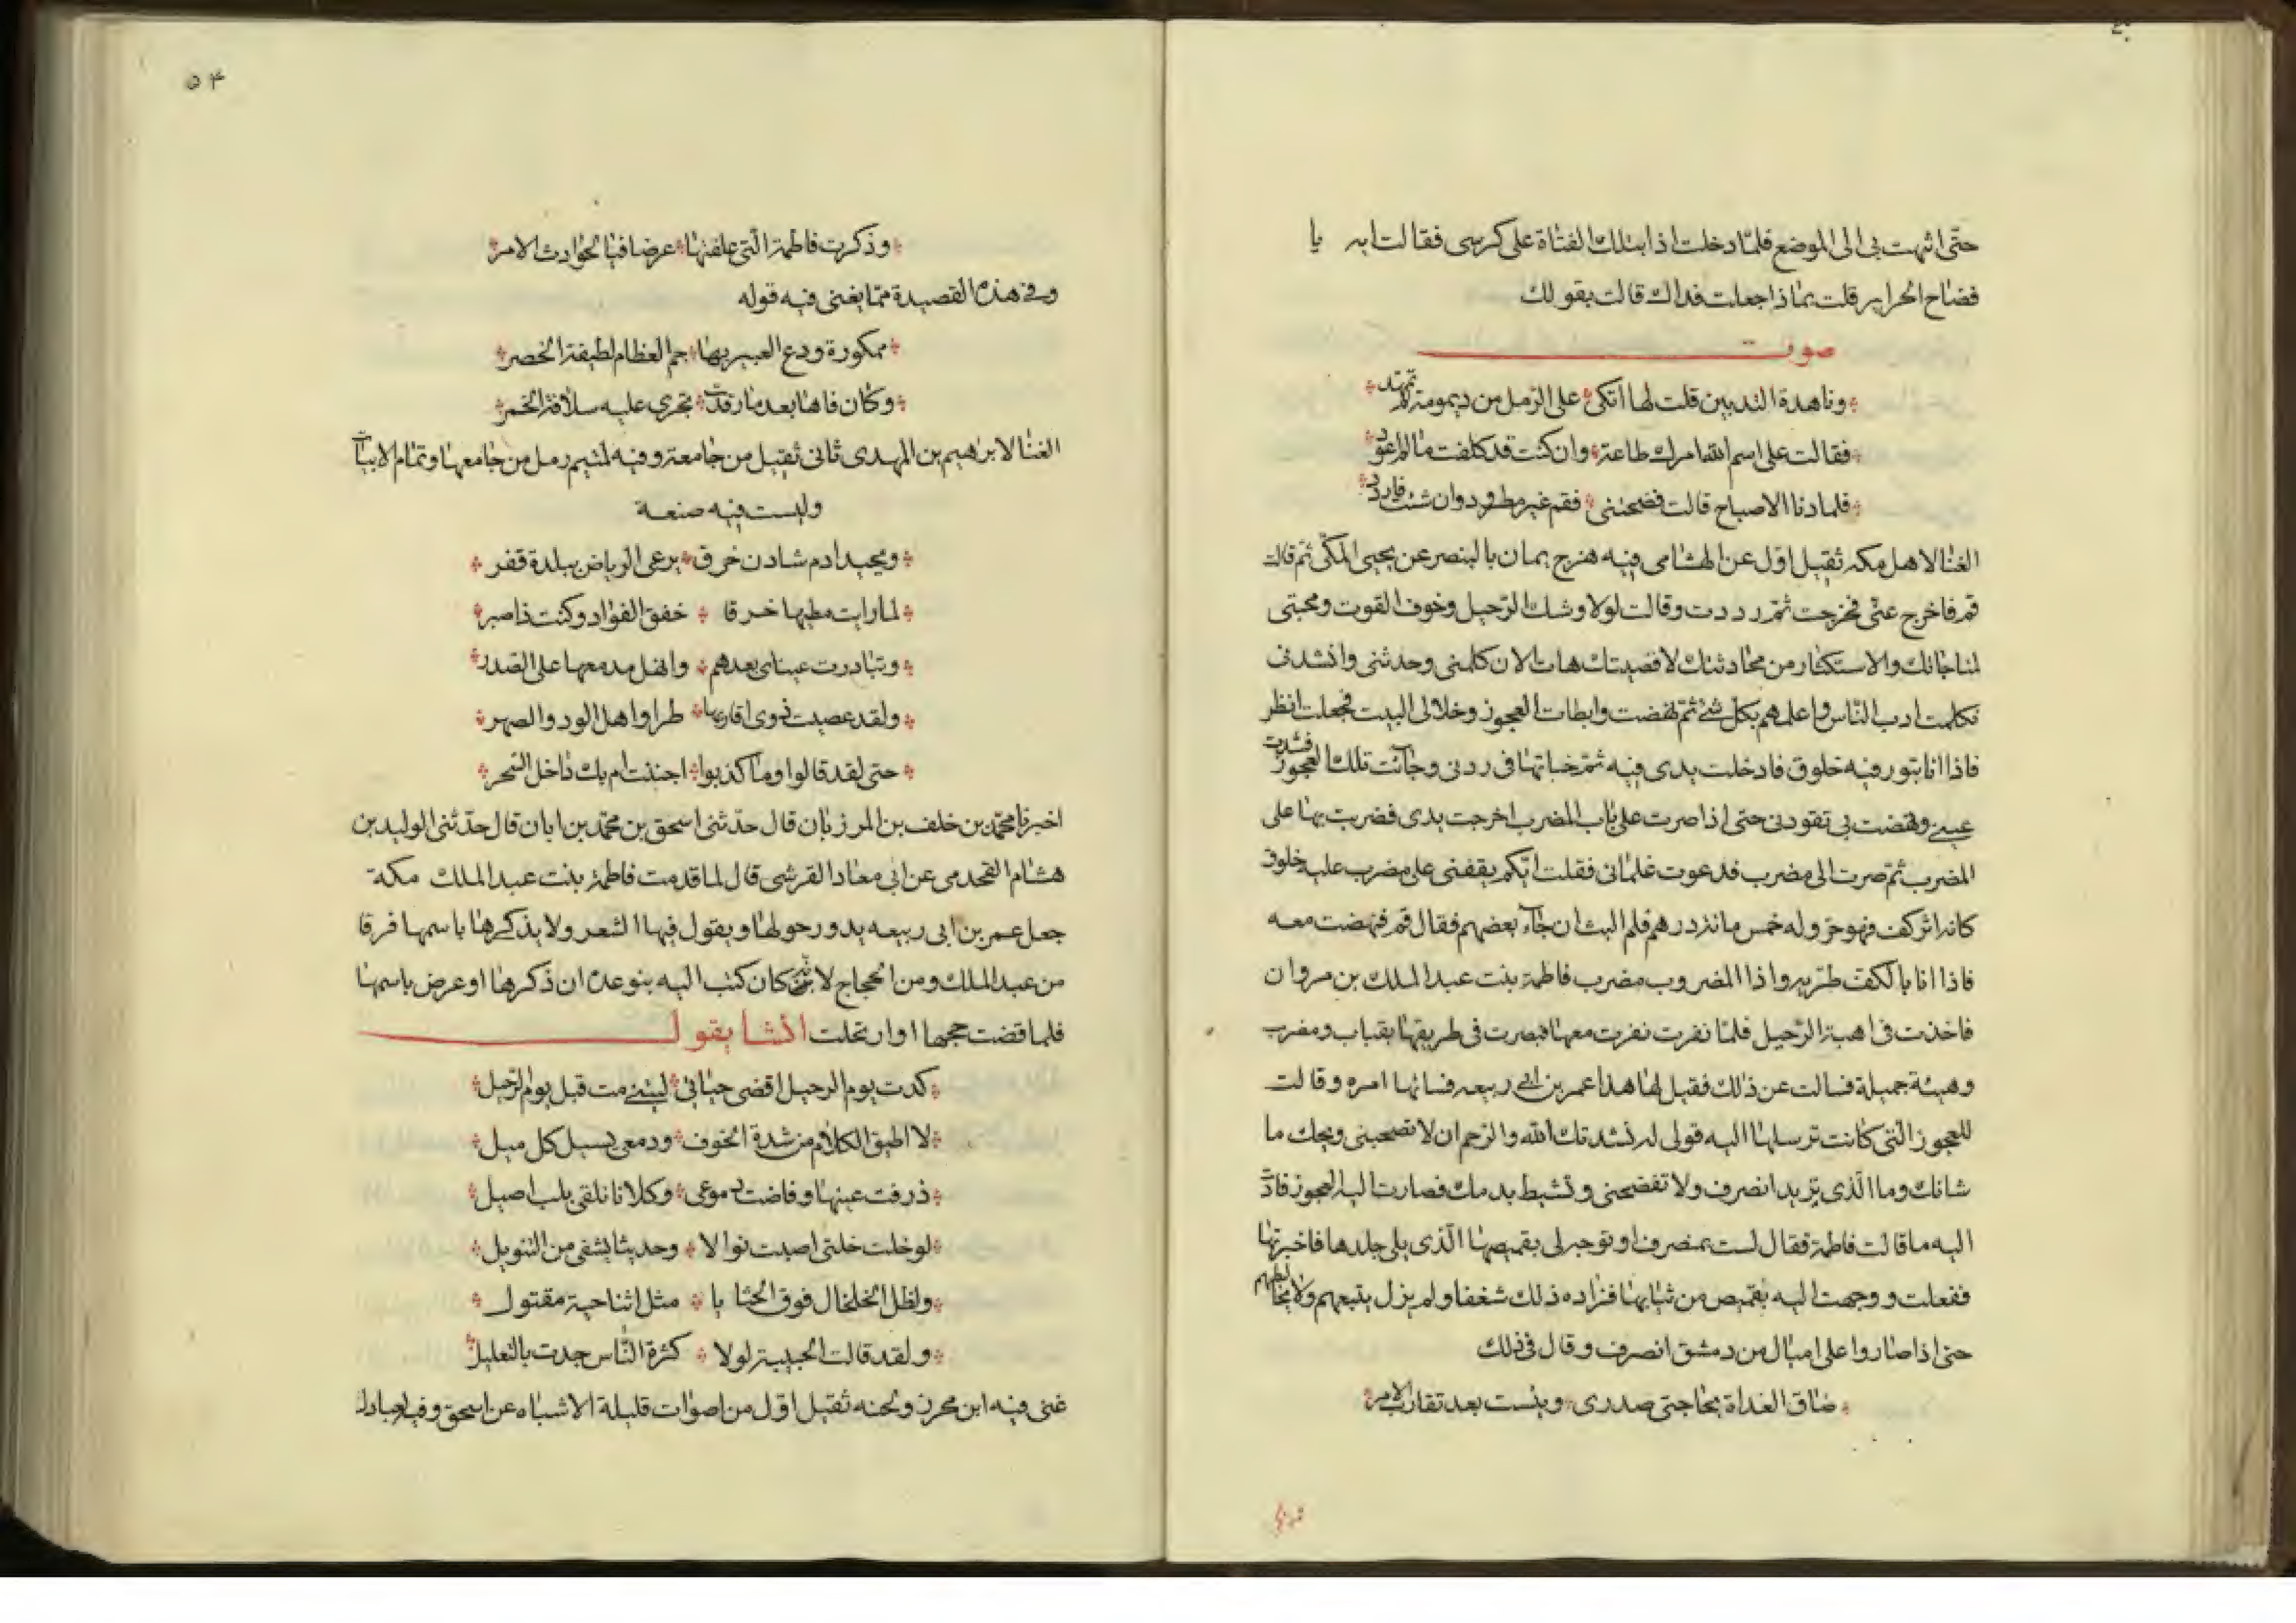 حتى اثهت بى الى الموضع فلما دخلت اذا بتلك الفتاة على كرسى فقالت ايه يا
فضاح الحراير قلت بماذا جعلت فداك قالت بقولك
صوت
وناهدة الثديين قلت لها اتكى * على الرمل من ديمومة لم تمهد
فقالت على اسم الله امرك طاعة * وان كنت قد كلفت ما لم اعود
فلما دنا الاصباح قالت فضحتنى * فقم غير مطرود وان شئت فازدد
الغنا لاهل مكه ثقيل اول عن الهشامى وفيه هزج يمان بالبنصر عن يحيى المكّى ثم قالت
قم فاخرج عنّى فخرجت ثم رددت وقالت لولا وشك الرّحيل وخوف الفوت ومحبتى
لمناجاتك والاستكثار من محادثتك لاقصيتك هات الان كلمنى وحدثنى وانشدنى
فكلمت ادب الناس واعلمهم بكل شئ ثم نهضت وابطات العجوز وخلا لى البيت فجعلت انظر
فاذا انا بتور فيه خلوق فادخلت يدى فيه ثم خباتها فى ردنى وجاءت تلك العجوز فشدت
عينى ونهضت بى تقودنى حتى اذا صرت على باب المضرب اخرجت يدى فضربت بها على
المضرب ثم صرت الى مضربى فدعوت غلمانى فقلت ايكم يقفنى على مضرب عليه خلوق
كانه اثر كف فهو حر وله خمس مائة درهم فلم البث ان جاء بعضهم فقال قم فنهضت معه
فاذا انا بالكف طريه واذا المضروب مضرب فاطمة بنت عبد الملك بن مروان
فاخذت فى اهبة الرّحيل فلمّا نفرت نفرت معها فبصرت فى طريقها بقباب ومضرب
وهيئة جميلة فسالت عن ذلك فقيل لها هذا عمر بن ابى ربيعه فسائها امره وقالت
للعجوز التى كانت ترسلها اليه قولى له نشدتك الله والرّحم ان لا تصحبنى ويحك ما
شانك وما الّذى تريد انصرف ولا تفضحنى وتشيط بدمك فصارت اليه العجوز فادّت
اليه ما قالت فاطمة فقال لست بمنصرف او توجه لى بقميصها الّذى يلى جلدها فاخبرتها
ففعلت ووجهت اليه بقميص من ثيابها فزاده ذلك شغفا ولم يزل يتبعهم ولا يخالطهم
حتى اذا صاروا على اميال من دمشق انصرف وقال فى ذلك
ضاق الغداة بحاجتى صدرى * ويئست بعد تقارب الامر
۵۴
وذكرت فاطمة الّتى علقتها * عرضا فيا لحوادث الامر
وفى هذه القصيدة ممّا يغنى فيه قوله
ممكورة ودع العبير بها * جم العظام لطيفة الخصر
وكان فاها بعد ما رقدت * تجرى عليه سلافة الخمر
الغنا لابرهيم بن المهدى ثانى ثقيل من جامعه وفيه لمتيم رمل من جامعها وتمام الابيات
وليست فيه صنعة
وبجيد ادم شادن خرق * يرعى الرياض ببلدة قفر
لما رايت مطيها خرقا * خفق الفؤاد وكنت ذا صبر
وتبادرت عيناى بعدهم * وانهل مدمعها على الصّدر
ولقد عصيت ذوى اقاربها * طرا واهل الود والصهر
حتى لقد قالوا وما كذبوا * اجننت ام بك داخل السّحر
اخبرنا محمّد بن خلف بن المرزبان قال حدثنى اسحق بن محمّد بن ابان قال حدّثنى الوليد بن
هشام القحدمى عن ابى معاذ القرشى قال لما قدمت فاطمة بنت عبد الملك مكة
جعل عمر بن ابى ربيعه يدور حولها ويقول فيها الشعر ولا يذكرها باسمها فرقا
من عبد الملك ومن الحجاج لانه كان كتب اليه يتوعده ان ذكرها او عرض باسمها
فلما قضت حجها وارتحلت انشا يقول
كدت يوم الرحيل اقضى حياتى * ليتنى مت قبل يوم الرّحيل
لا اطيق الكلام من شدة الخوف * ودمعى يسيل كل مسيل
ذرفت عينها وفاضت دموعى * وكلانا يلقى بلب اصيل
لو خلت خلتى اصبت نوالا * وحديثا يشفى من التنويل
ولظل الخلخال فوق الحشايا * مثل اثناء حية مقتول
ولقد قالت الحبيبة لولا * كثرة النّاس جدت بالتعليل
غنى فيه ابن محرز ولحنه ثقيل اول من اصوات قليلة الاشباه عن اسحق وفيه لعبادل